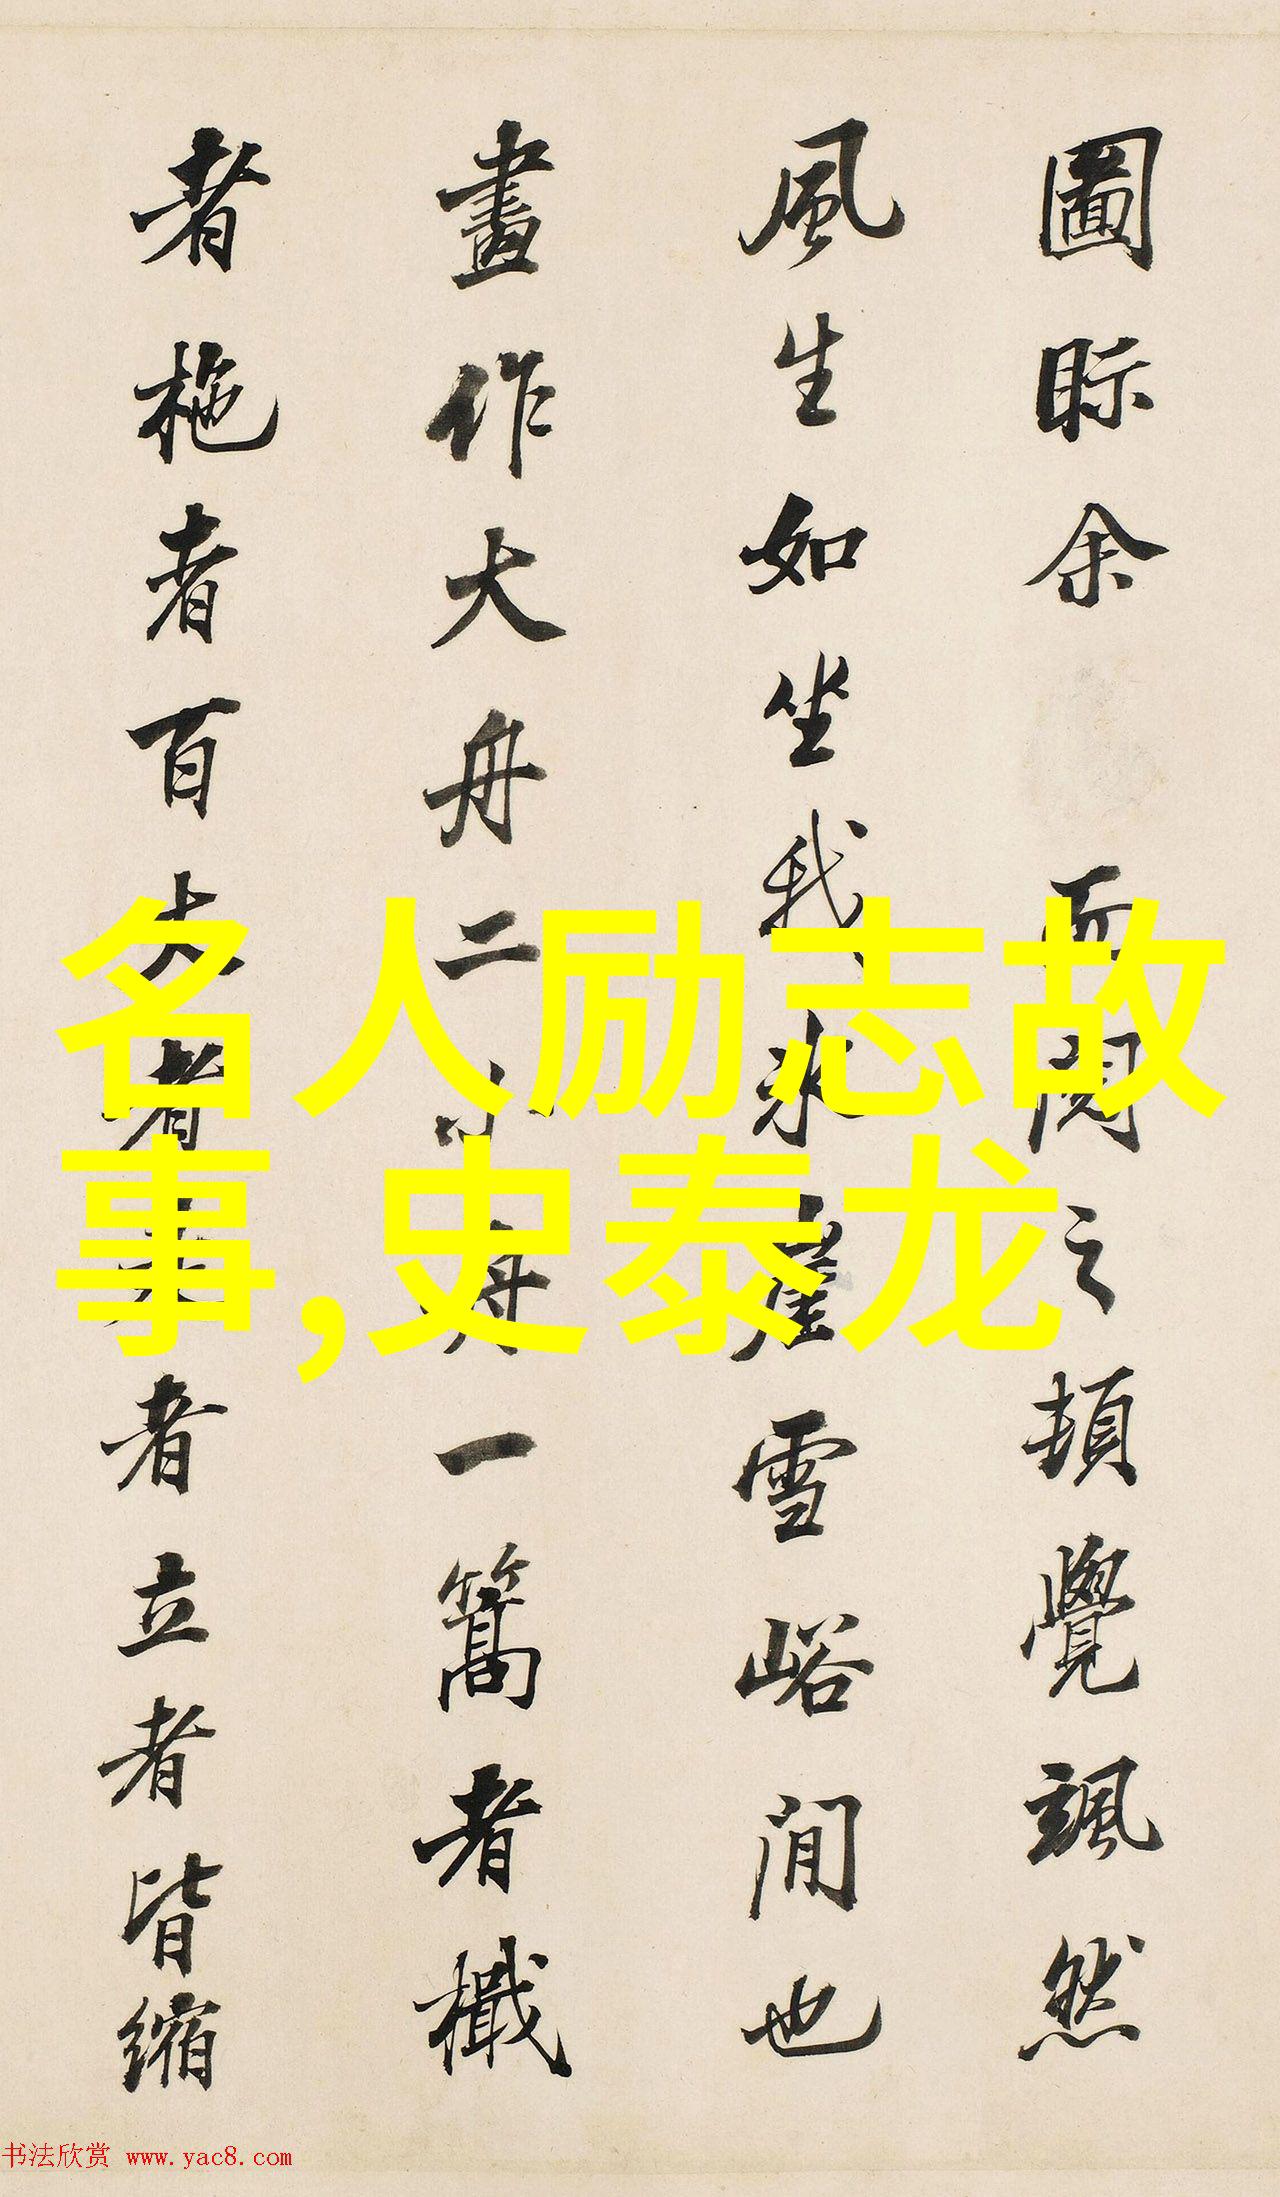 圖际余 而閱之頓覺颯然
風生如坐我冰崖雪峪間也
畫作大舟二小舟一篙者檝
者柂者百丈者坐者立者皆縮
名人励志故
事,史泰龙
书法欣赏 www.yac8.com